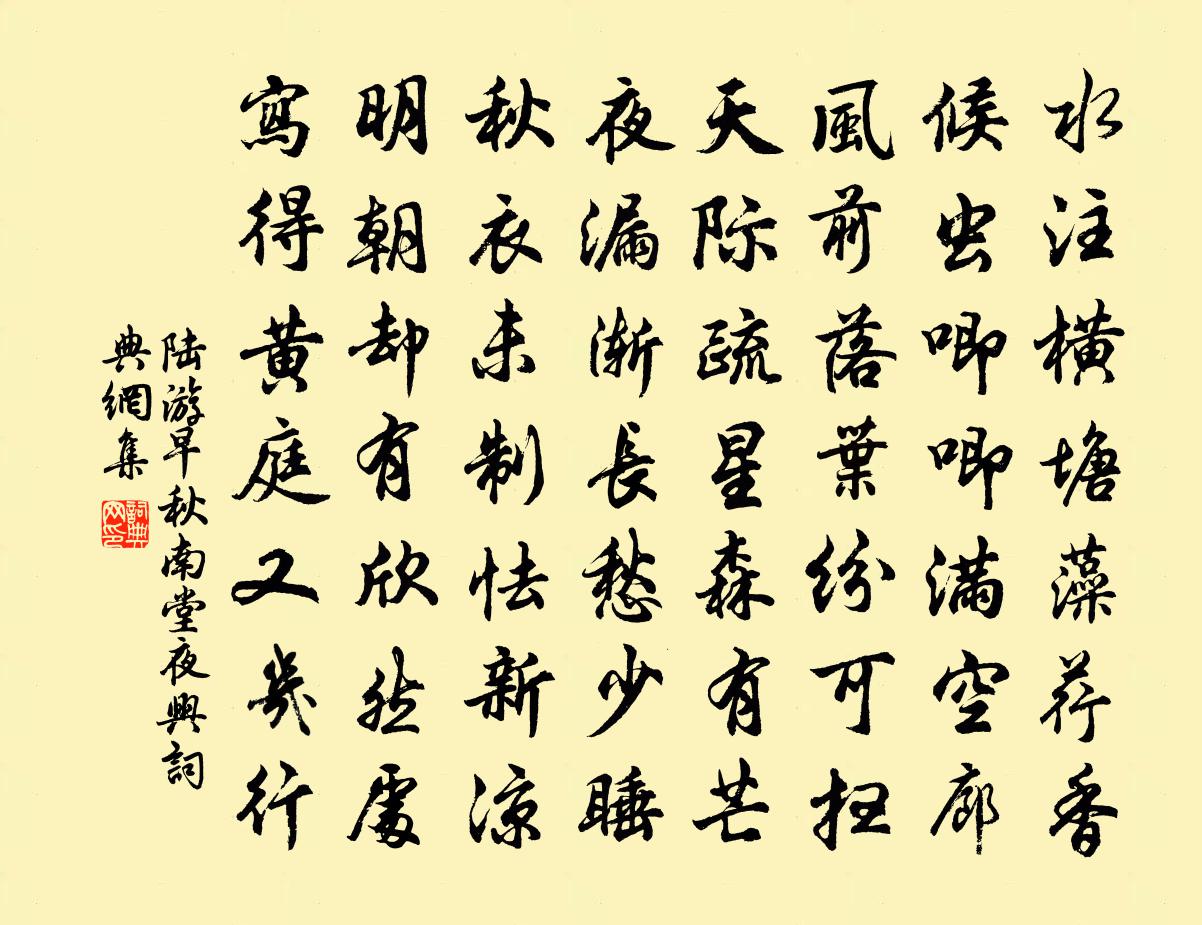 水注橫塘藻荇香
候虫唧唧滿空廊
風前落葉紛可扫
天际疏星森有芒
夜漏漸長愁少睡
秋衣未制怯新涼
明朝却有欣然處
寫得黃庭又幾行
陆游早秋南堂夜興詞
典網集
詞典
网印